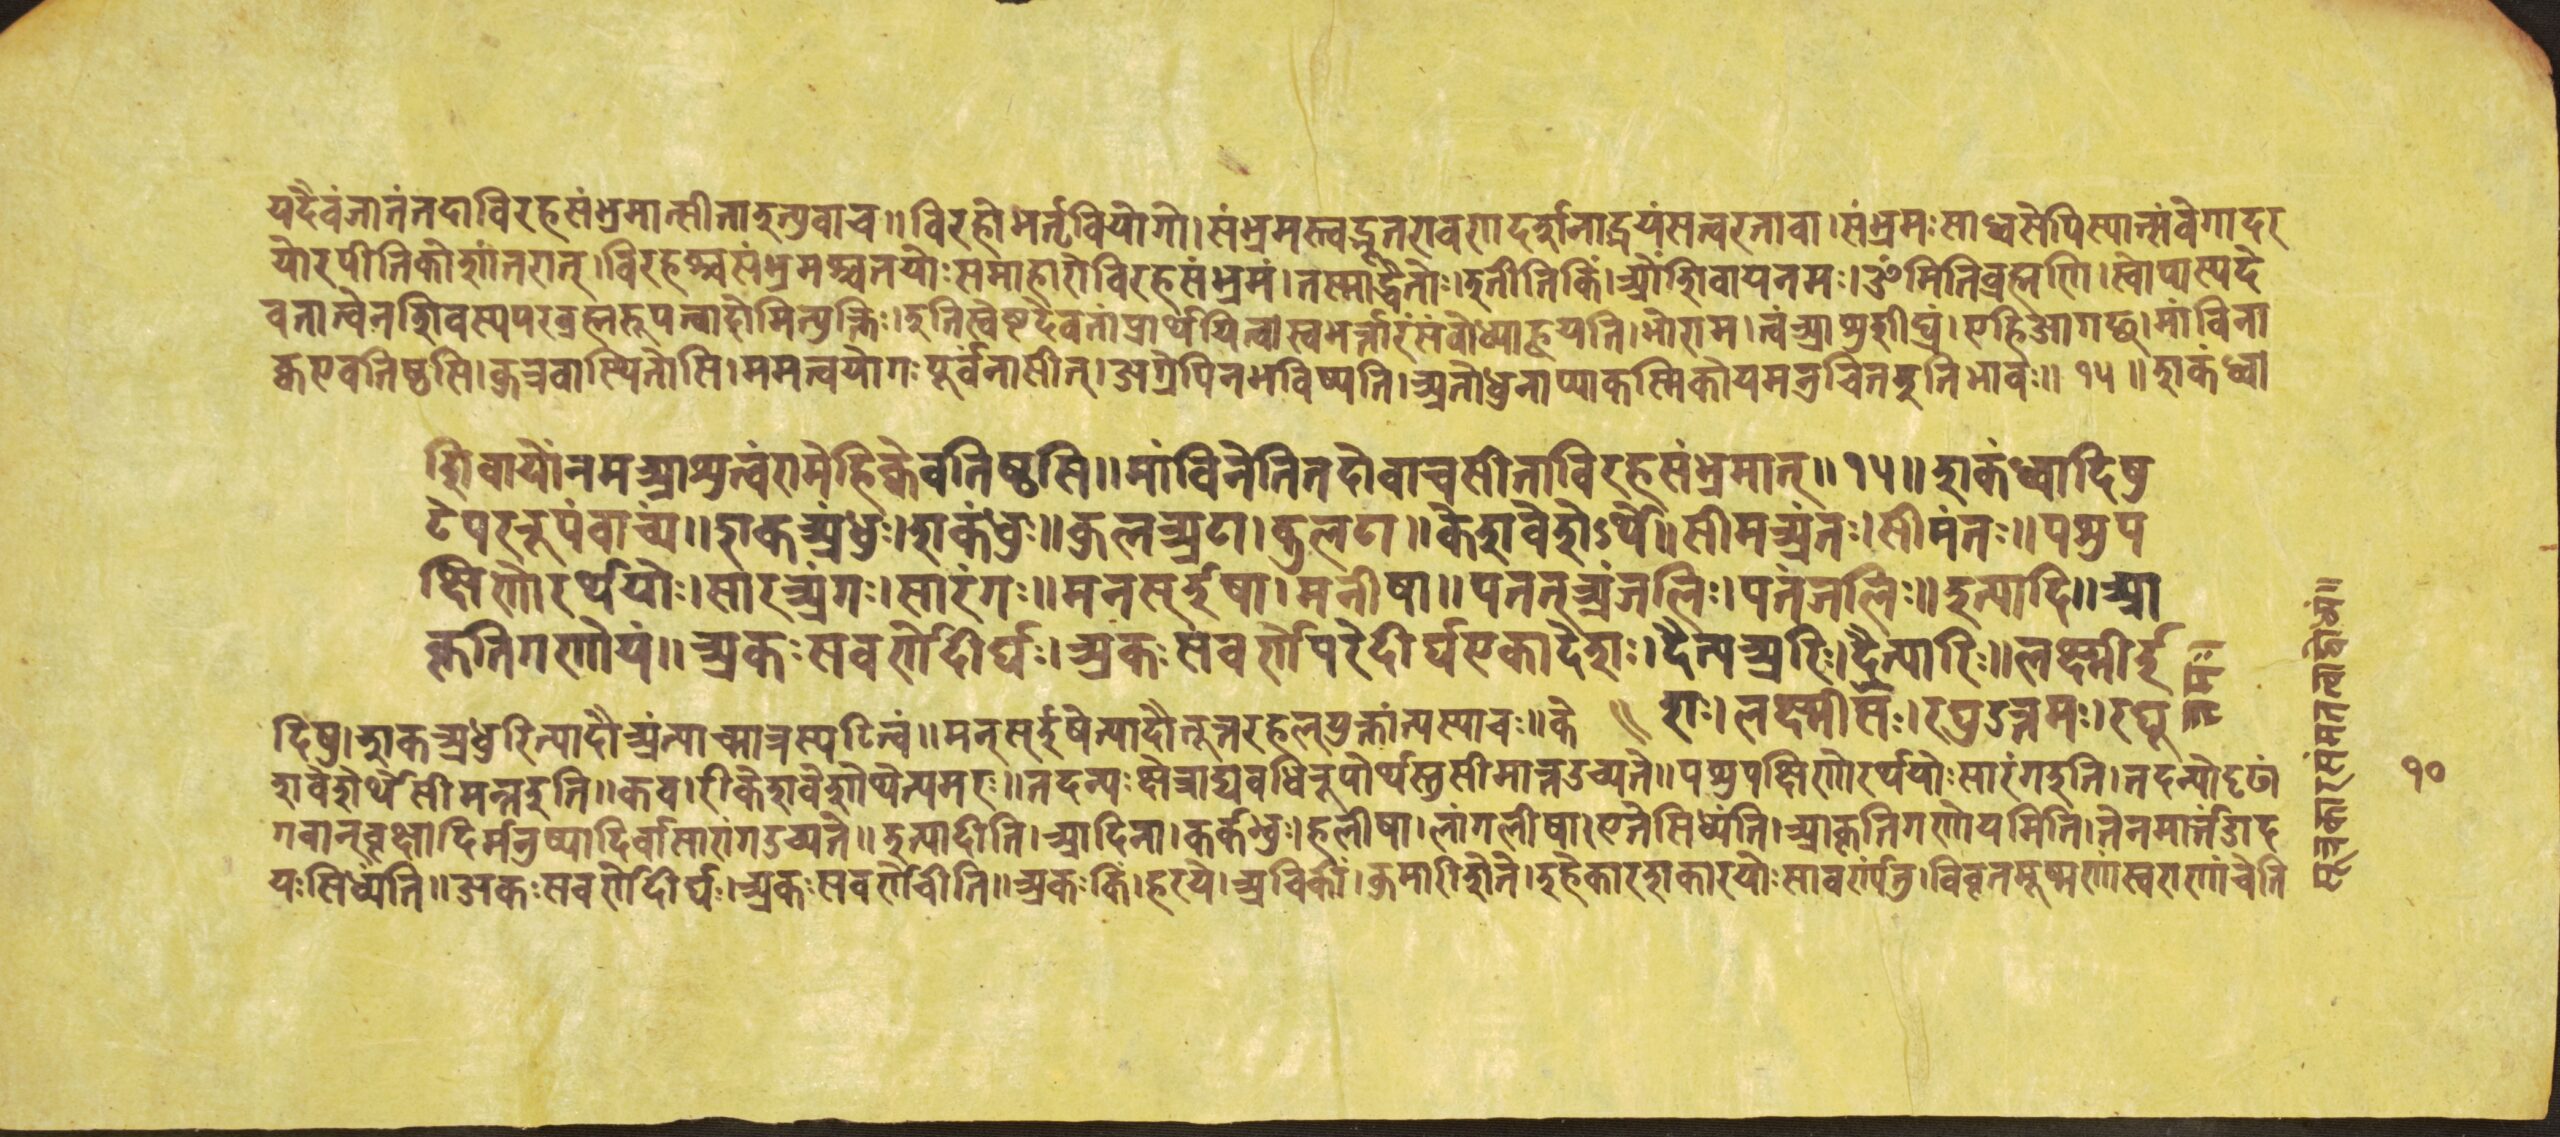 यदैवंजातंतदाविरहसंभ्रमात्सीताइत्युवाच॥विरहोभर्तृवियोगो।संभ्रमस्त्वद्भूतरावणदर्शनाद्भयंसत्वरतावा।संभ्रमःसाध्वसेपिस्यात्संवेगादर
योरपीतिकोशांतरात्।विरहश्चसंभ्रमश्चतयोःसमाहारोविरहसंभ्रमं।तस्माद्धेतोः।इतीतिकिं।ओंशिवायनमः।ॐमितिब्रह्मणि।स्वोपास्यदे
वतात्वेनशिवस्यपरब्रह्मरूपत्वादोमित्युक्तिः।इतिस्वेष्टदेवतांप्रार्थयित्वास्वभर्त्तारंसंबोध्याह्वयति।भोराम।त्वंआशुशीघ्रं।एहिआगच्छ।मांविना
क्वएवतिष्ठसि।कुत्रवास्थितोसि।ममत्वयोगःपूर्वंनासीत्।अग्रेपिनभविष्यति।अतोधुनाप्याकस्मिकोयमनुचितइतिभावः॥१५॥शकंध्वा
शिवायोंनमआशुत्वंरामेहिक्वेवतिष्ठसि॥मांविनेतितदोवाचसीताविरहसंभ्रमात्॥१५॥शकंध्वादिषु
टेपररूपंवाच्यं॥शकअंधुः।शकंधुः॥कुलअटा।कुलटा॥केशवेशेऽर्थे॥सीमअंतः।सीमंतः॥पशुप
क्षिणोरर्थयोः।सारअंगः।सारंगः॥मनस्ईषा।मनीषा॥पतत्अंजलिः।पतंजलिः॥इत्यादि॥आ
कृतिगणोयं॥अकःसवर्णेदीर्घः।अकःसवर्णेपरेदीर्घएकादेशः।दैत्यअरिः।दैत्यारिः॥लक्ष्मीई
शः।लक्ष्मीशः।रघुउत्तमः।रघू
त्तमः॥
दिषु।शकअंधुरित्यादौअंत्याच्मात्रस्यटित्वं॥मनस्ईषेत्यादौतूत्तरहल्युक्तांत्यस्याचः॥के
शवेशेर्थेसीमन्तइति॥कवरीकेशवेशोथेत्यमरः॥तदन्यःक्षेत्राद्यवधिरूपोर्थस्तुसीमान्तउच्यते॥पशुपक्षिणोरर्थयोःसारंगइति।तदन्योदृढां
गवान्वृक्षादिर्मनुष्यादिर्वासारांगउच्यते॥इत्यादीति।आदिना।कर्कंधुः।हलीषा।लांगलीषा।एतेसिध्यंति।आकृतिगणोयमिति।तेनमार्त्तंडाद
यःसिध्यंति॥अकःसवर्णेदीर्घः।अकःसवर्णेचीति॥अकःकिं।हरये।अचिकिं।कुमारीशेते।इहेकारशकारयोःसावर्ण्यंतु।विवृतमूष्मणांस्वराणांचेति
१०